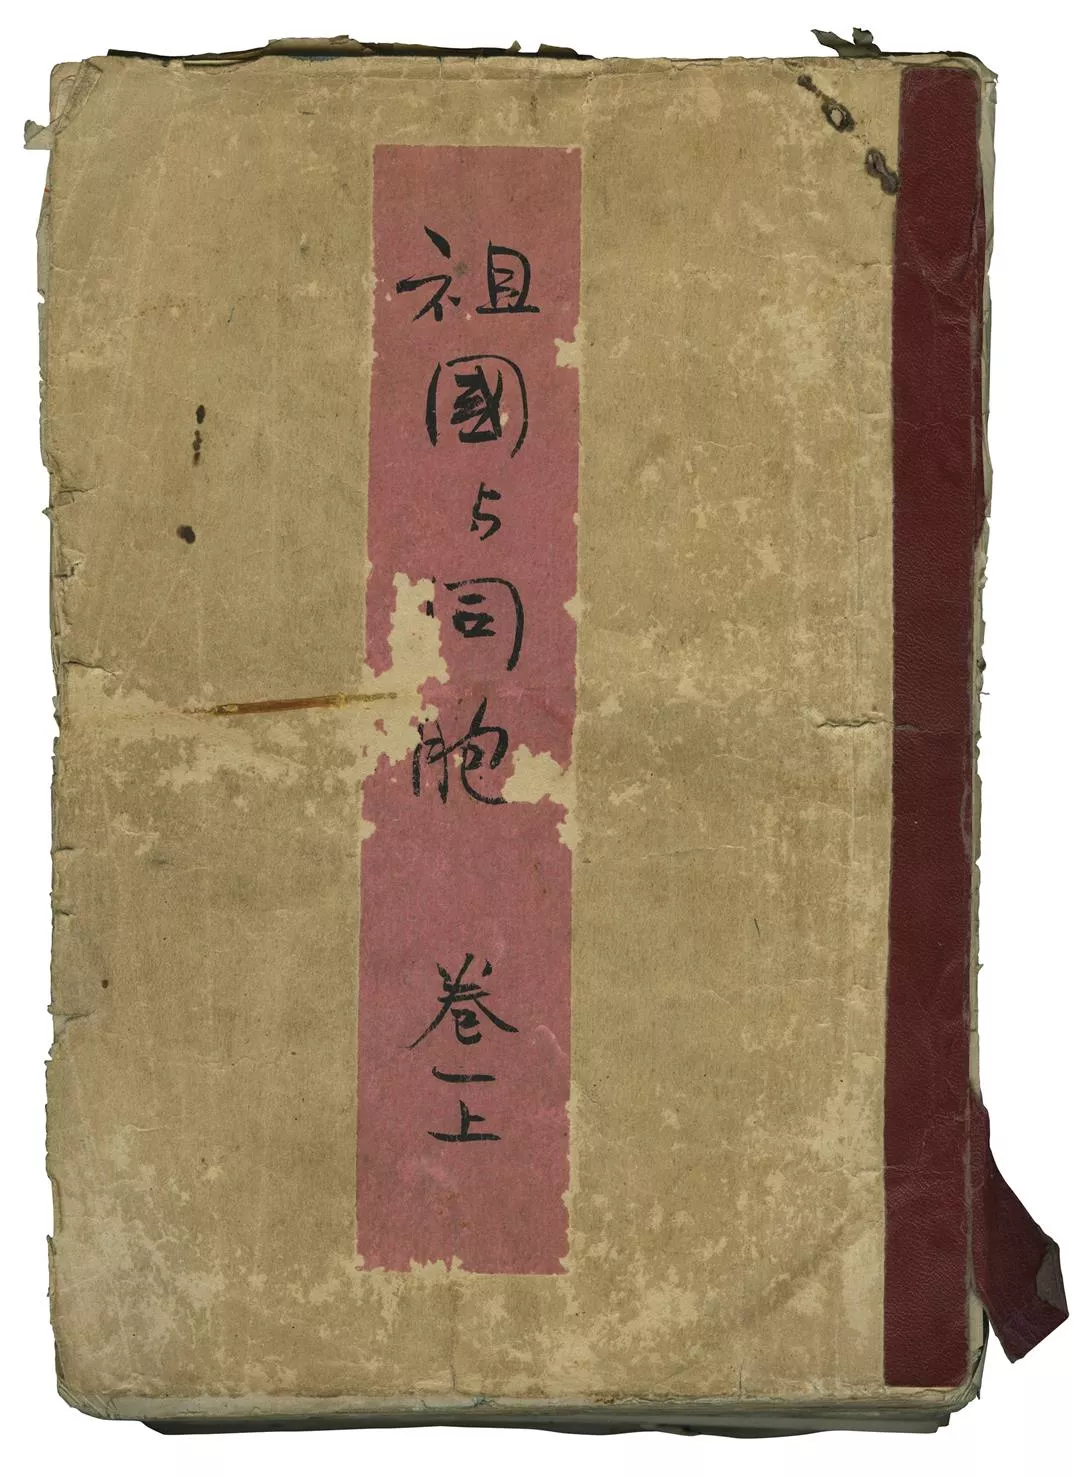 祖國与同胞 卷一上